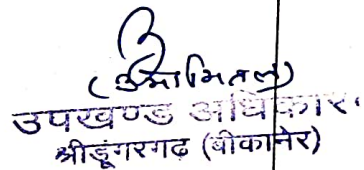 (उमा मित्तल)
उपखण्ड अधिकार
श्रीडूंगरगढ़ (बीकानेर)